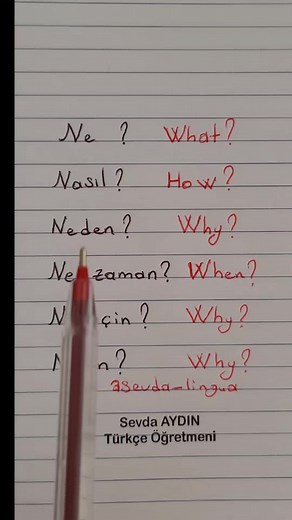 Ne ? What?
Nasıl? How?
Neden? Why?
Ne zaman? When?
için? Why?
Why?
sevda-lingua
Sevda AYDIN
Türkçe Öğretmeni